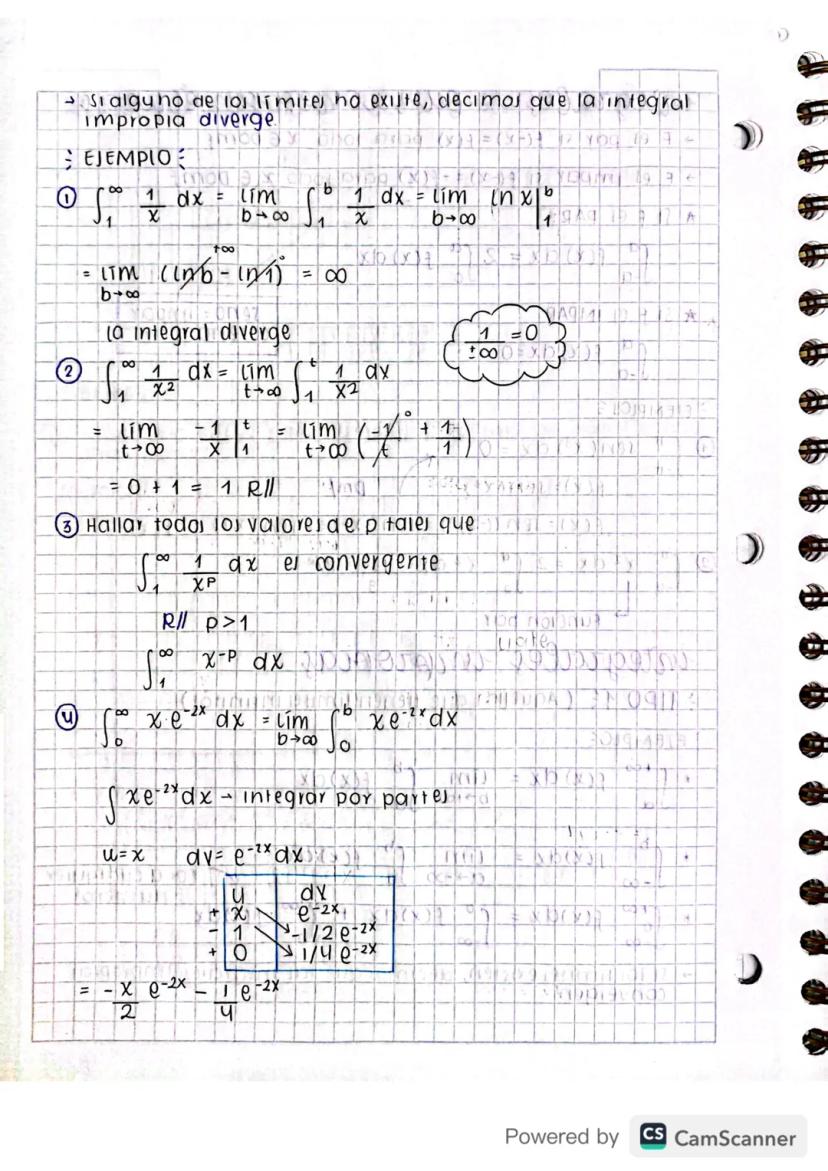 → Si alguno de los límites no existe, decimos que la integral
impropia diverge.
EJEMPLO:
① ∫₁^∞ 1/x dx = lím b→∞ ∫₁^b 1/x dx = lím b→∞ ln x |₁^b
= lím b→∞ (ln b - ln 1) = ∞
+∞ 0
la integral diverge
1/±∞ = 0
② ∫₁^∞ 1/x² dx = lím t→∞ ∫₁^t 1/x² dx
= lím t→∞ -1/x |₁^t = lím t→∞ (-1/t + 1/1)
0
= 0 + 1 = 1 R//
③ Hallar todos los valores de p tales que
∫₁^∞ 1/x^p dx es convergente
R// p>1
∫₁^∞ x^-p dx
④ ∫₀^∞ x·e^-2x dx = lím b→∞ ∫₀^b xe^-2x dx
∫ xe^-2x dx → integrar por partes
u=x dv= e^-2x dx
u dv
+ x e^-2x
- 1 -1/2 e^-2x
+ 0 1/4 e^-2x
= -x/2 e^-2x - 1/4 e^-2x
Powered by CS CamScanner